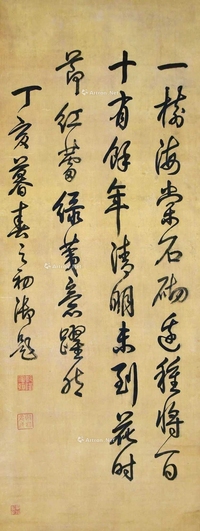 一樹海棠石砌邊種將百
十有餘年清明未到花時
節紅蕾綠荑意躍然
丁亥暮春之初御題